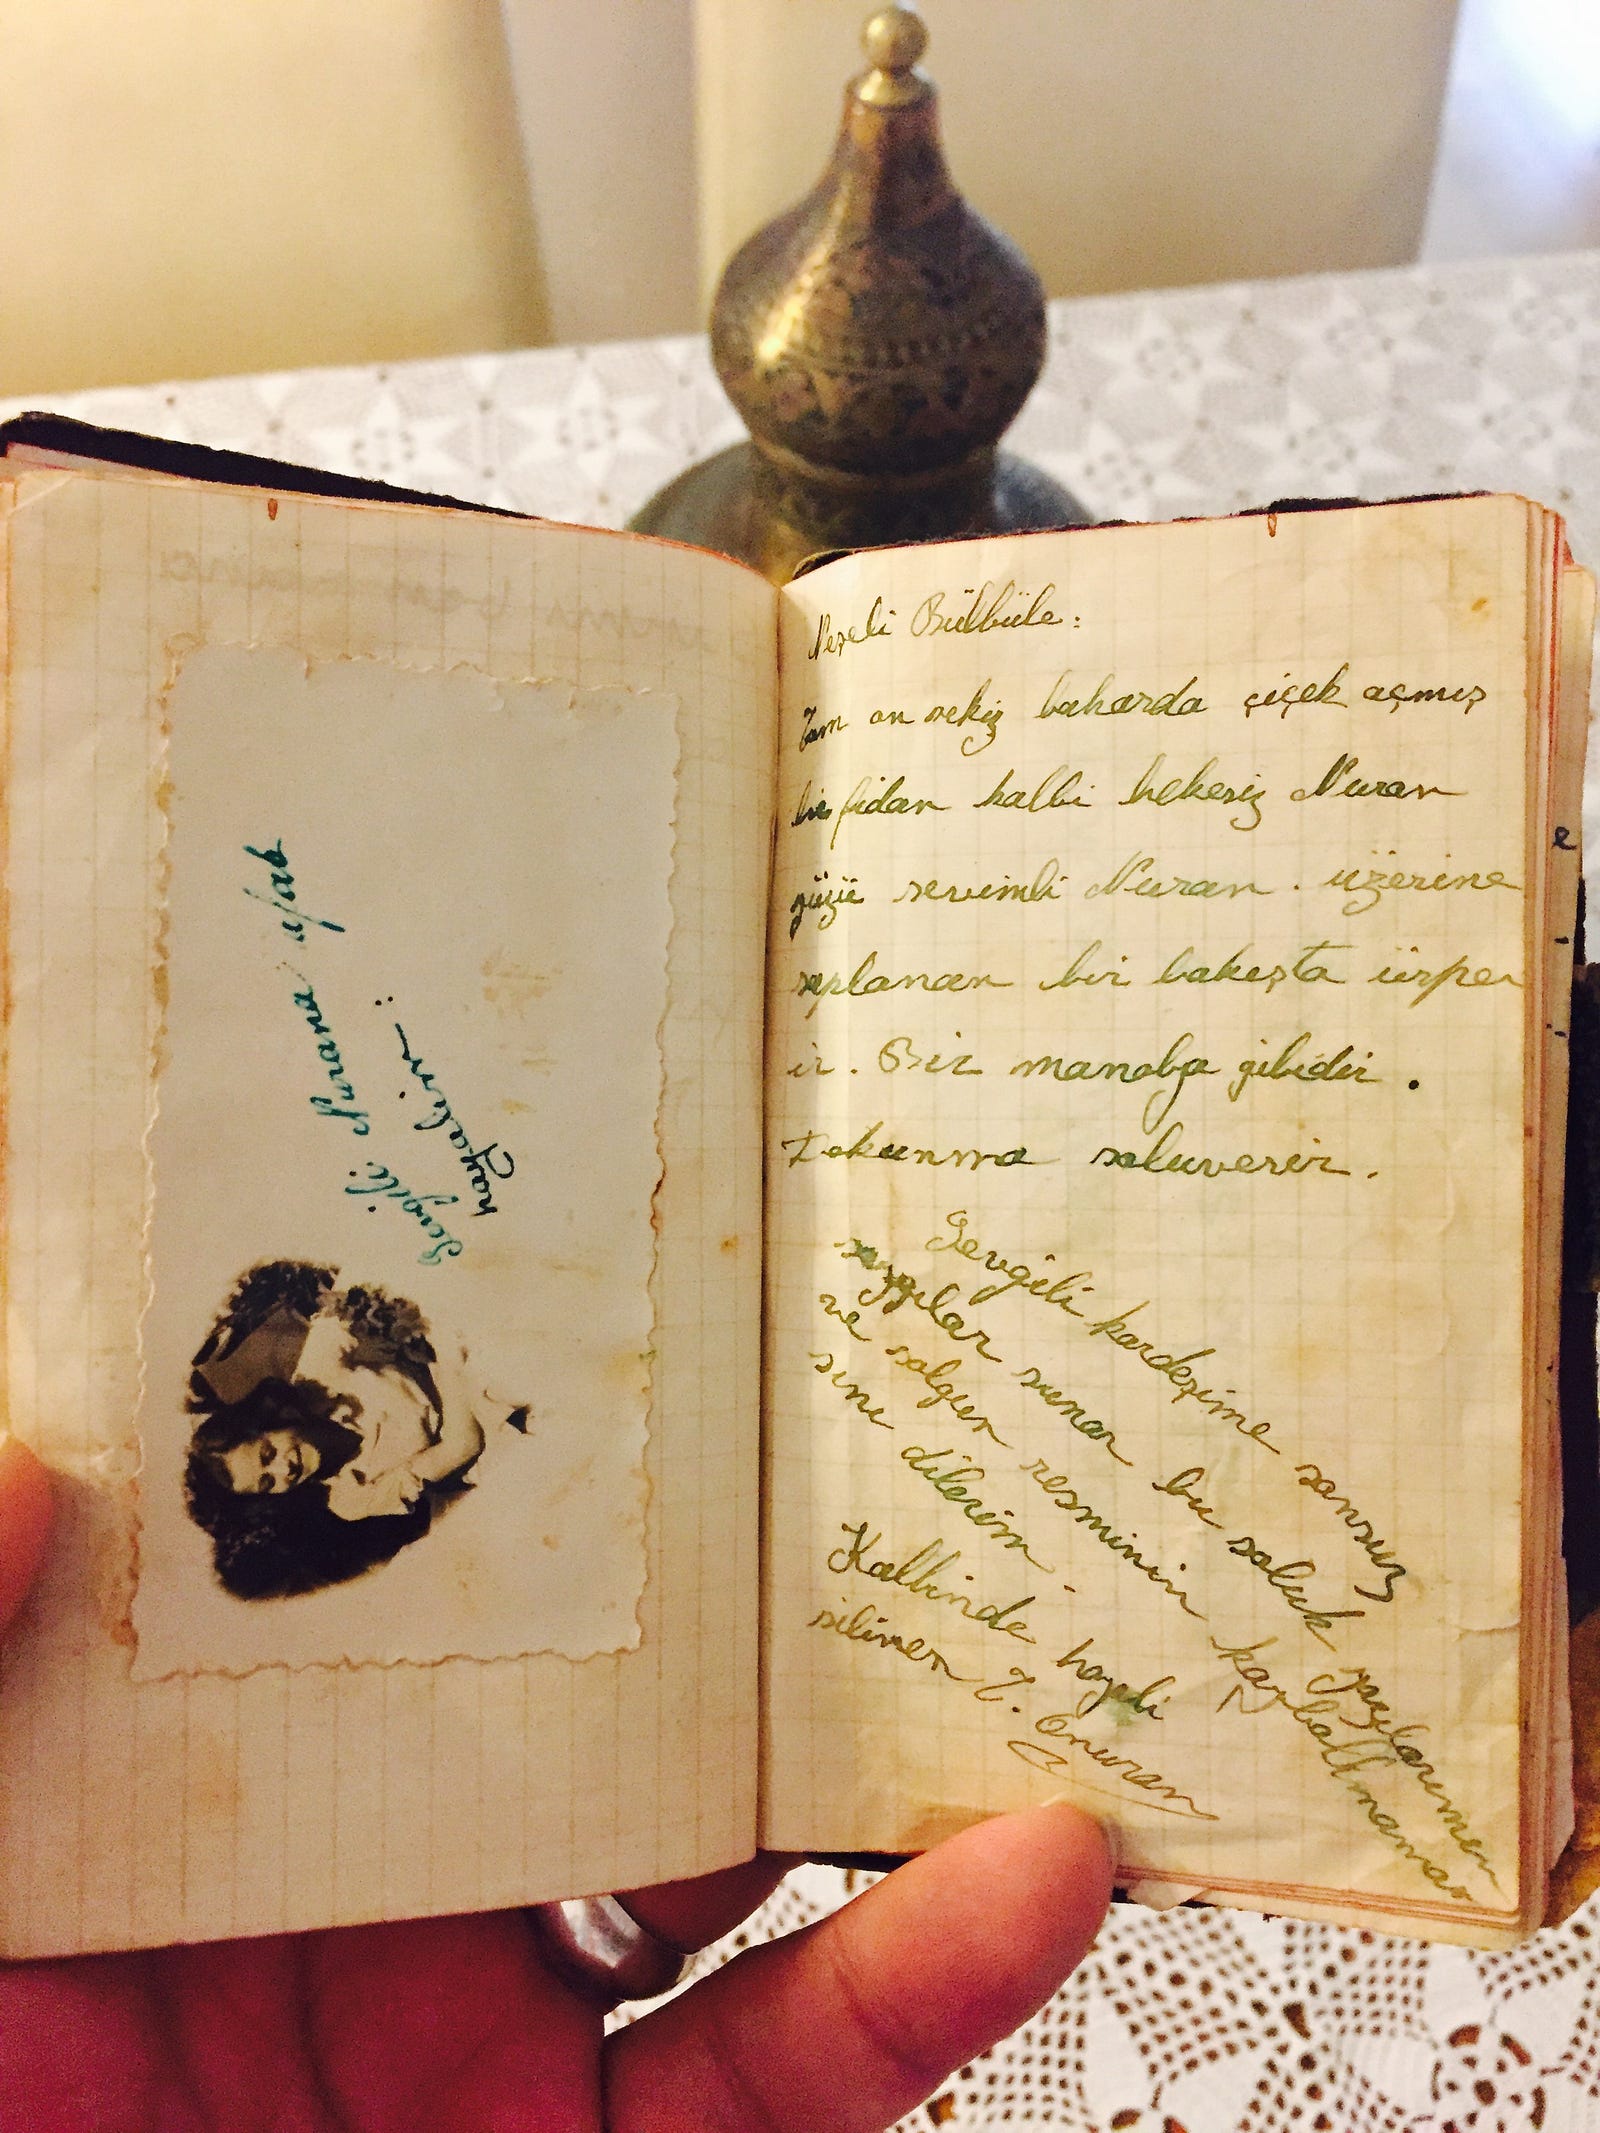 Sevgili Nurana ufak
hayalim:
Neşeli Bülbüle:
Tam on sekiz baharda çiçek açmış
bir fidan kalbi lekesiz Nuran
yüzü sevimli Nuran. üzerine
saplanan bir bakışta ürper
ir. Bir manolya gibidir.
Dokunma soluverir.
Sevgili kardeşime sonsuz
saygılar sunar bu soluk yazılarımın
ve solgun resminin kaybollmama
sını dilerim.
Kalbinde hayali
silinen T. Onuran